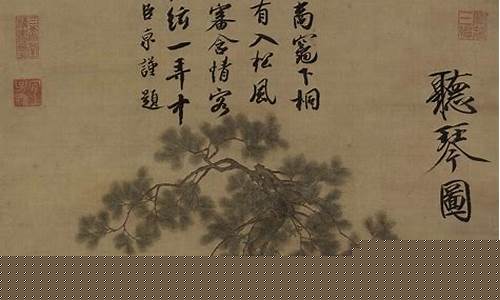 聽琴圖
商竈下桐
有入松風
審含情客
絃一弄中
臣京謹題